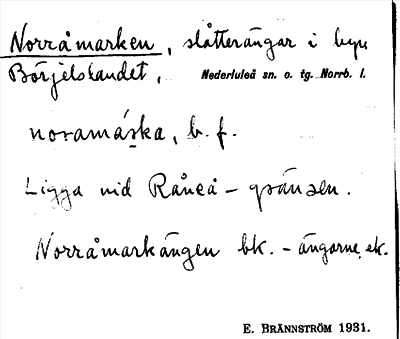 Norråmarken, slåtterängar i byn
Börjelslandet, Nederluleå sn. o. tg. Norrb. l.
noramáska, b. f.
Ligga vid Råneå-gränsen.
Norråmarkängen bk. - ängarne, ek.
E. BRÄNNSTRÖM 1931.